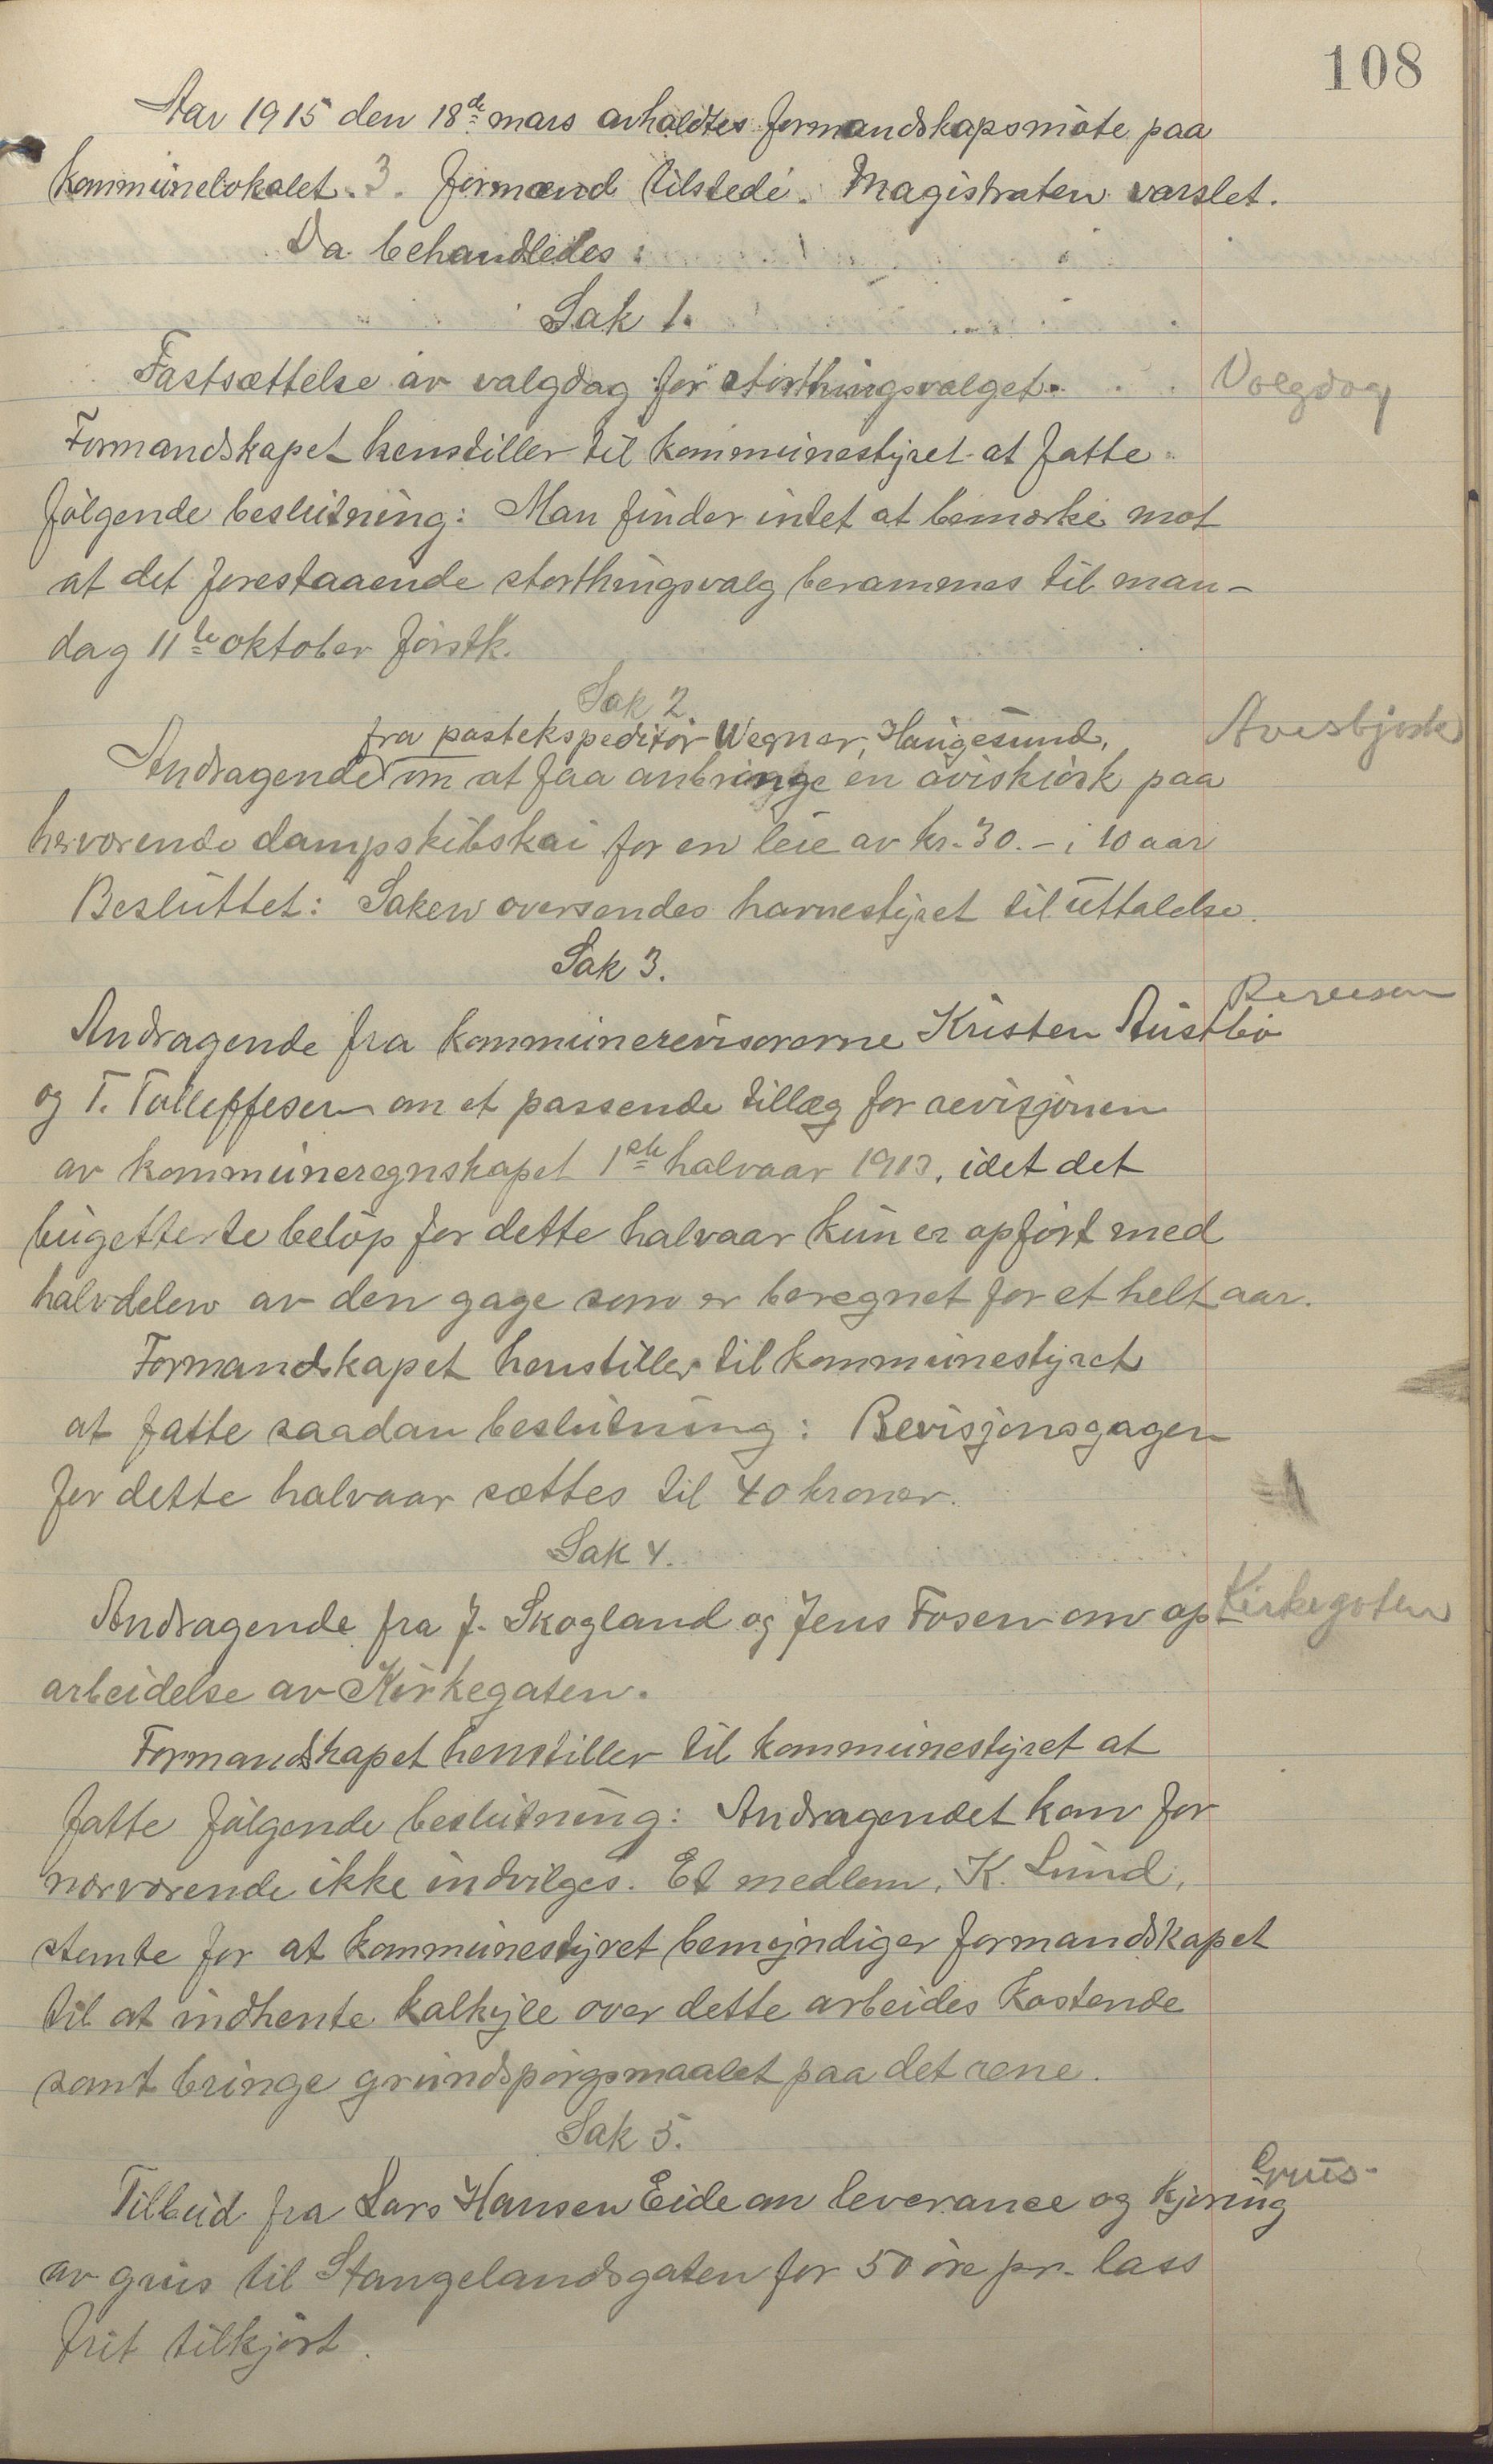 108
Aar 1915 den 18de mars avholdtes formandskapsmøte paa
kommunelokalet. 3. formænd tilstede. Magistraten varslet.
Da behandledes:
Sak 1.
Fastsættelse av valgdag for storthingsvalget.
Valgdag
Formandskapet henstiller til kommunestyret at fatte
følgende beslutning: Man finder intet at bemerke mot
at det forestaaende storthingsvalg berammes til man-
dag 11te oktober førstk.
Sak 2.
fra postekspeditør Wegner, Haugesund,
Aviskjosk
Andragende om at faa anbringe en aviskiosk paa
herværende dampskibskai for en leie av kr. 30.- i 10 aar
Besluttet: Saken oversendes havnestyret til uttalelse.
Sak 3.
Andragende fra kommunerevisorerne Kristen Austbø
og T. Tolleffesen om et passende tillæg for revisjonen
av kommuneregnskapet 1ste halvaar 1913, idet det
bugetterte beløp for dette halvaar kun er opført med
halvdelen av den gage som er beregnet for et helt aar.
Formandskapet henstiller til kommunestyret
at fatte saadan beslutning: Revisjonsgagen
for dette halvaar sættes til 40 kroner.
Sak 4.
Andragende fra J. Skogland og Jens Fosen om op-
Kirkegaten
arbeidelse av Kirkegaten.
Formandskapet henstiller til kommunestyret at
fatte følgende beslutning: Andragendet kan for
nærværende ikke indvilges. Et medlem, K. Lund,
stemte for at kommunestyret bemyndiger formandskapet
til at indhente kalkyle over dette arbeides kostende
samt bringe grundspørgsmaalet paa det rene.
Sak 5.
Grus-
Tilbud fra Lars Hansen Eide om leverance og kjøring
av grus til Stangelandsgaten for 50 øre pr. lass
frit tilkjørt.